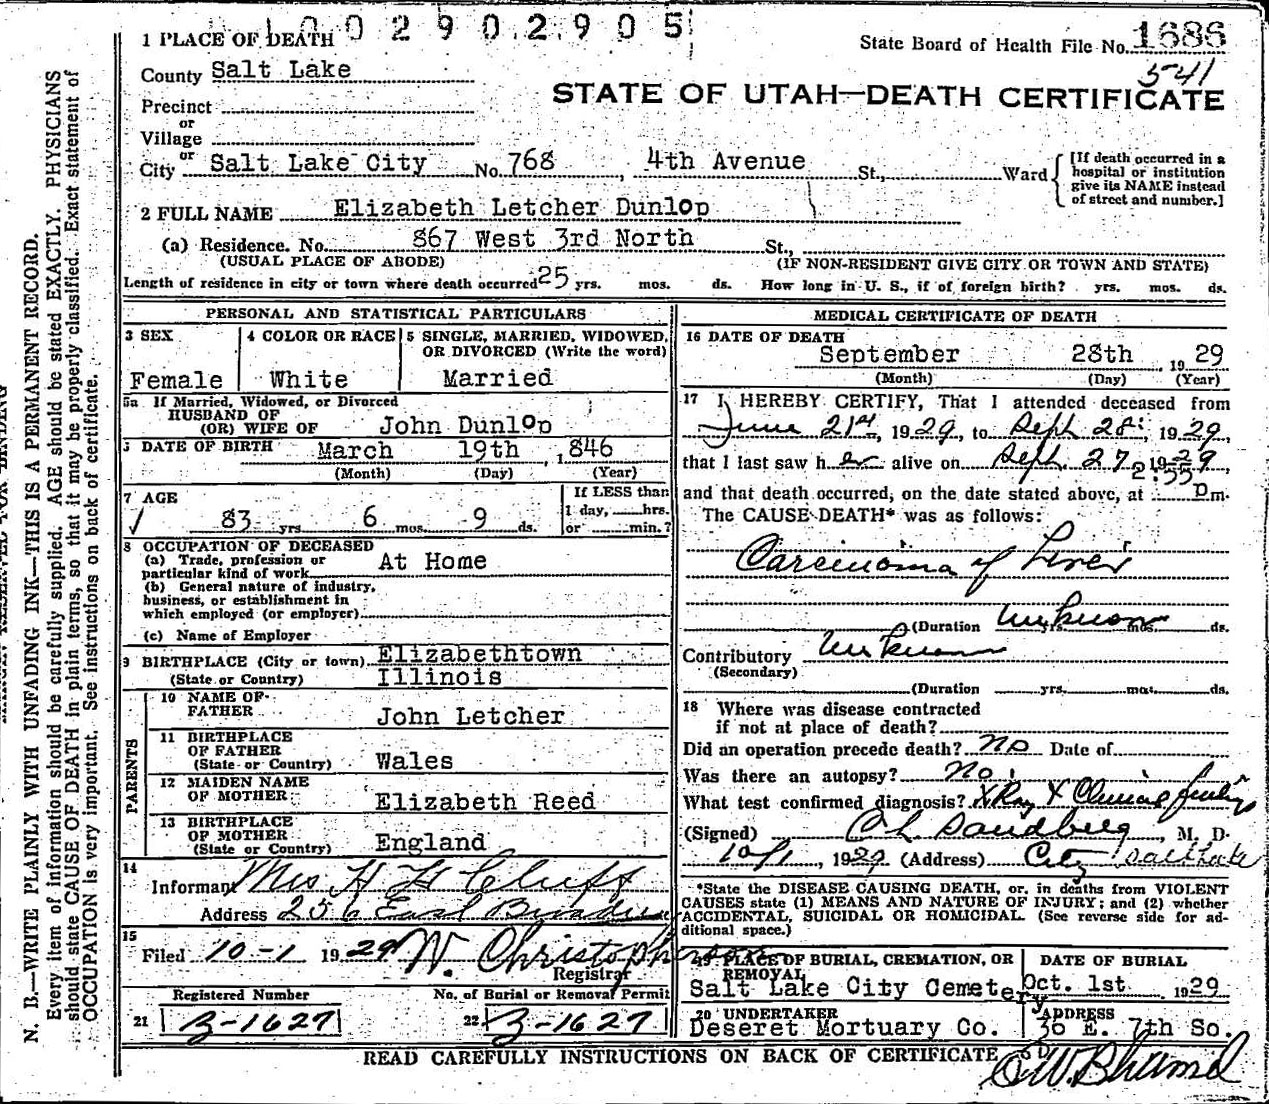 1002902905
1 PLACE OF DEATH
State Board of Health File No. 1686
541
County Salt Lake
STATE OF UTAH—DEATH CERTIFICATE
Precinct
or
Village
or
City Salt Lake City No. 768 , 4th Avenue St., Ward
[If death occurred in a hospital or institution give its NAME instead of street and number.]
2 FULL NAME Elizabeth Letcher Dunlop
(a) Residence. No. 867 West 3rd North St.,
(USUAL PLACE OF ABODE) (IF NON-RESIDENT GIVE CITY OR TOWN AND STATE)
Length of residence in city or town where death occurred 25 yrs. mos. ds. How long in U. S., if of foreign birth? yrs. mos. ds.
PERSONAL AND STATISTICAL PARTICULARS
3 SEX
Female
4 COLOR OR RACE
White
5 SINGLE, MARRIED, WIDOWED,
OR DIVORCED (Write the word)
Married
5a If Married, Widowed, or Divorced
HUSBAND OF
(OR) WIFE OF John Dunlop
6 DATE OF BIRTH March 19th , 1846
(Month) (Day) (Year)
7 AGE
83 yrs 6 mos. 9 ds.
If LESS than
1 day, hrs.
or min.?
8 OCCUPATION OF DECEASED
(a) Trade, profession or
particular kind of work At Home
(b) General nature of industry,
business, or establishment in
which employed (or employer)
(c) Name of Employer
9 BIRTHPLACE (City or town) Elizabethtown
(State or Country) Illinois
PARENTS
10 NAME OF
FATHER John Letcher
11 BIRTHPLACE
OF FATHER
(State or Country) Wales
12 MAIDEN NAME
OF MOTHER Elizabeth Reed
13 BIRTHPLACE
OF MOTHER
(State or Country) England
14
Informant Mrs H H Cluff
Address 256 East Broadway
15
Filed 10-1 1929 W. Christopherson
Registrar
Registered Number
21 B-1627
No. of Burial or Removal Permit
22 B-1627
MEDICAL CERTIFICATE OF DEATH
16 DATE OF DEATH
September 28th , 1929
(Month) (Day) (Year)
17 I HEREBY CERTIFY, That I attended deceased from
June 21st, 1929, to Sept 28, 1929
that I last saw her alive on Sept 27, 1929,
and that death occurred, on the date stated above, at 2:55 pm.
The CAUSE DEATH* was as follows:
Carcinoma of Liver
(Duration Unknown yrs. mos. ds.
Contributory Unknown
(Secondary)
(Duration yrs. mos. ds.
18 Where was disease contracted
if not at place of death?
Did an operation precede death? no Date of
Was there an autopsy? no
What test confirmed diagnosis? X Ray & Clinical findings
(Signed) Sandberg, M. D.
10/1, 1929 (Address) City Salt Lake
*State the DISEASE CAUSING DEATH, or, in deaths from VIOLENT
CAUSES state (1) MEANS AND NATURE OF INJURY; and (2) whether
ACCIDENTAL, SUICIDAL OR HOMICIDAL. (See reverse side for ad-
ditional space.)
19 PLACE OF BURIAL, CREMATION, OR
REMOVAL
Salt Lake City Cemetery
DATE OF BURIAL
Oct. 1st. , 1929
20 UNDERTAKER
Deseret Mortuary Co.
ADDRESS
36 E. 7th So.
READ CAREFULLY INSTRUCTIONS ON BACK OF CERTIFICATE
N. B.—WRITE PLAINLY WITH UNFADING INK—THIS IS A PERMANENT RECORD.
Every item of information should be carefully supplied. AGE should be stated EXACTLY. PHYSICIANS
should state CAUSE OF DEATH in plain terms, so that it may be properly classified. Exact statement of
OCCUPATION is very important. See instructions on back of certificate.